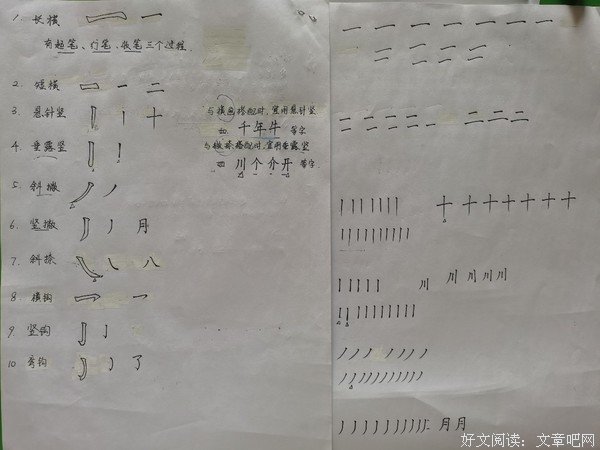 1. 长横 一
有起笔、行笔、收笔三个过程.
2. 短横 一 二
3. 悬针竖 丨 十
与横画搭配时,宜用悬针竖
如 千年牛 等字
4. 垂露竖 丨
与撇捺搭配时,宜用垂露竖
如 川个介开 等字
5. 斜撇 丿
6. 竖撇 丿 月
7. 斜捺 ㇏ 八
8. 横钩 乛
9 竖钩 亅
10 弯钩 了
一 一 一 一 一 一 一
二 二 二 二
二 二 二 二 二 二 二
十 十 十 十 十 十 十
川 川 川 川 川
月月
好文阅读:文章吧网